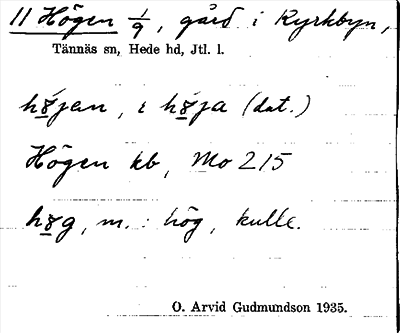 11 Högen 1/9, gård i Kyrkbyn,
Tännäs sn, Hede hd, Jtl. l.
hɤ̱jen, i hɤ̱ja (dat.)
Högen kb, Mo 215
hɤ̱g, m. : hög, kulle.
O. Arvid Gudmundson 1935.